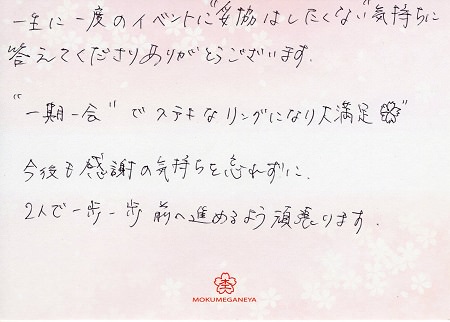 一生に一度のイベントに"妥協はしたくない"気持ちに
答えてくださりありがとうございます.
"一期一会"でステキなリングになり大満足"
今後も感謝の気持ちを忘れずに.
2人で一歩一歩前へ進めるよう頑張ります.
MOKUMEGANEYA